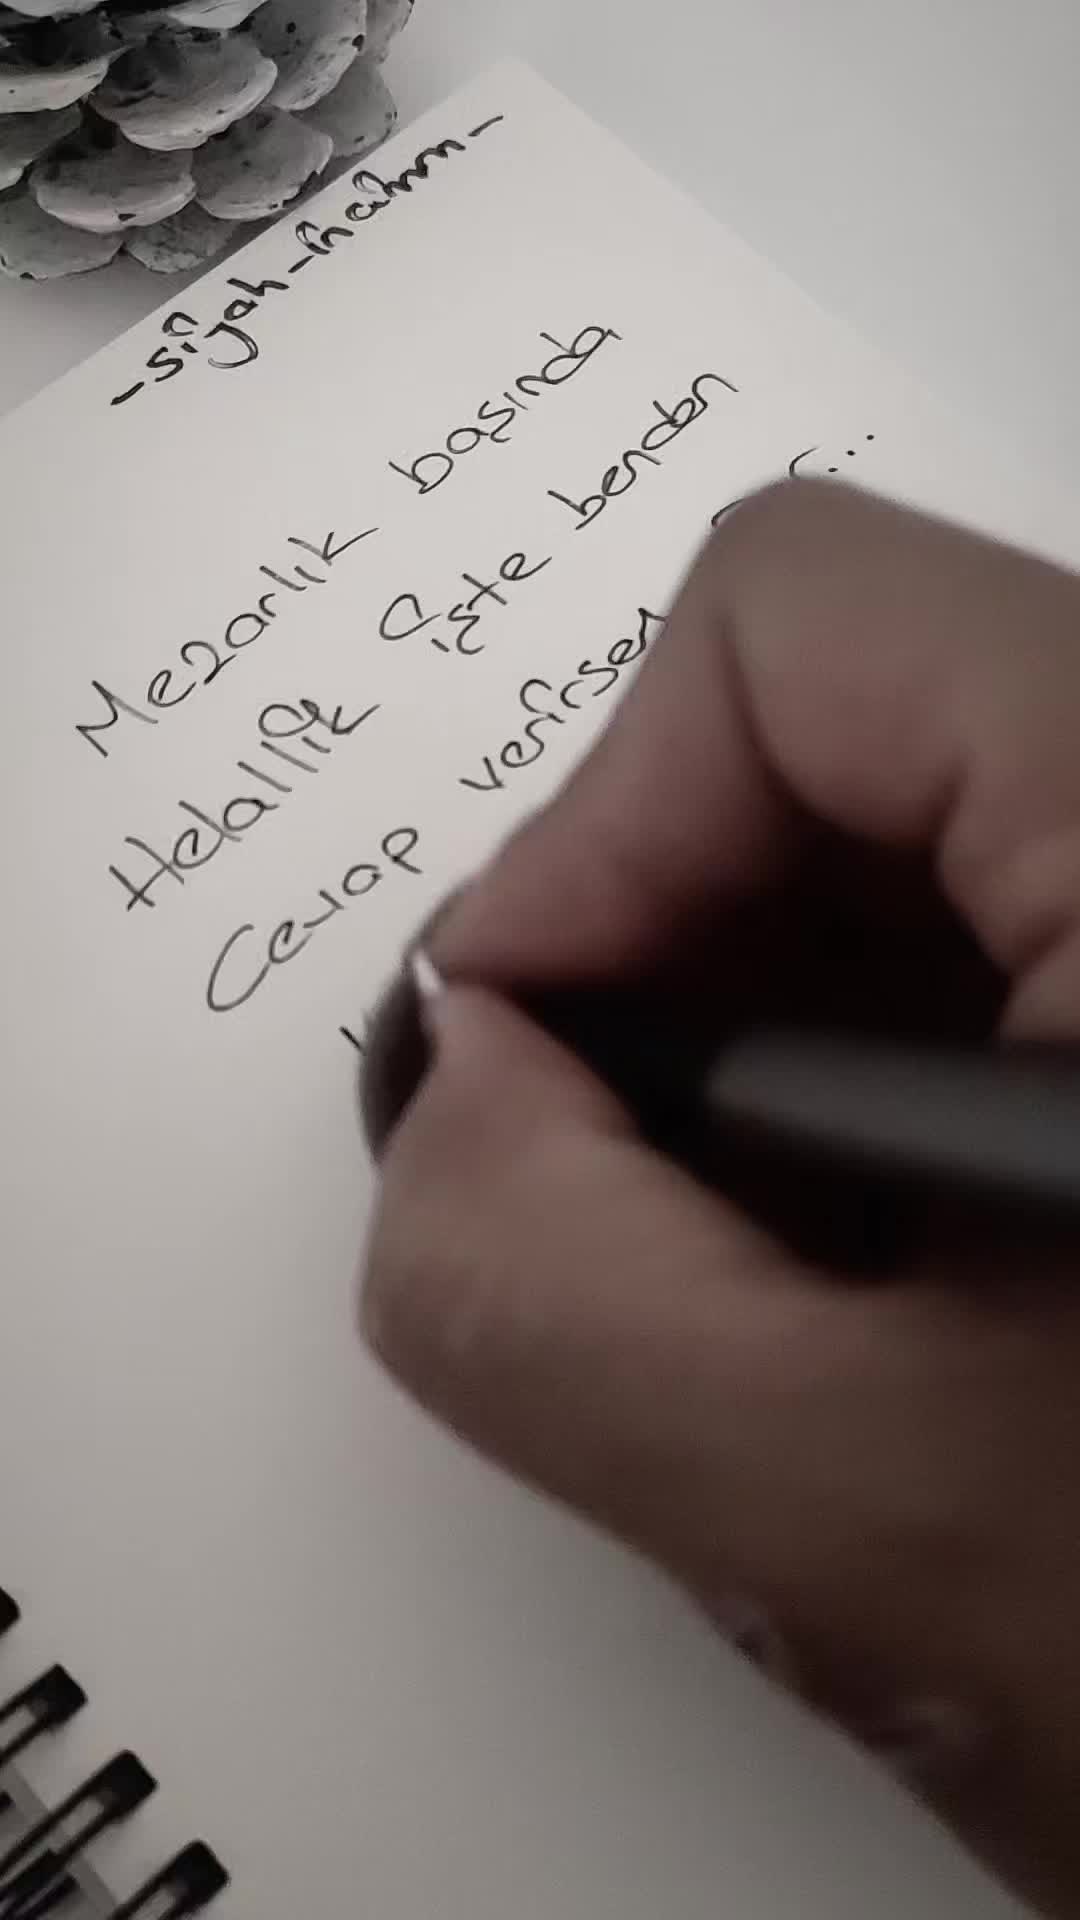 -sijah-
Mezarlık başında
Helallik iste benden
Cevap verirsen